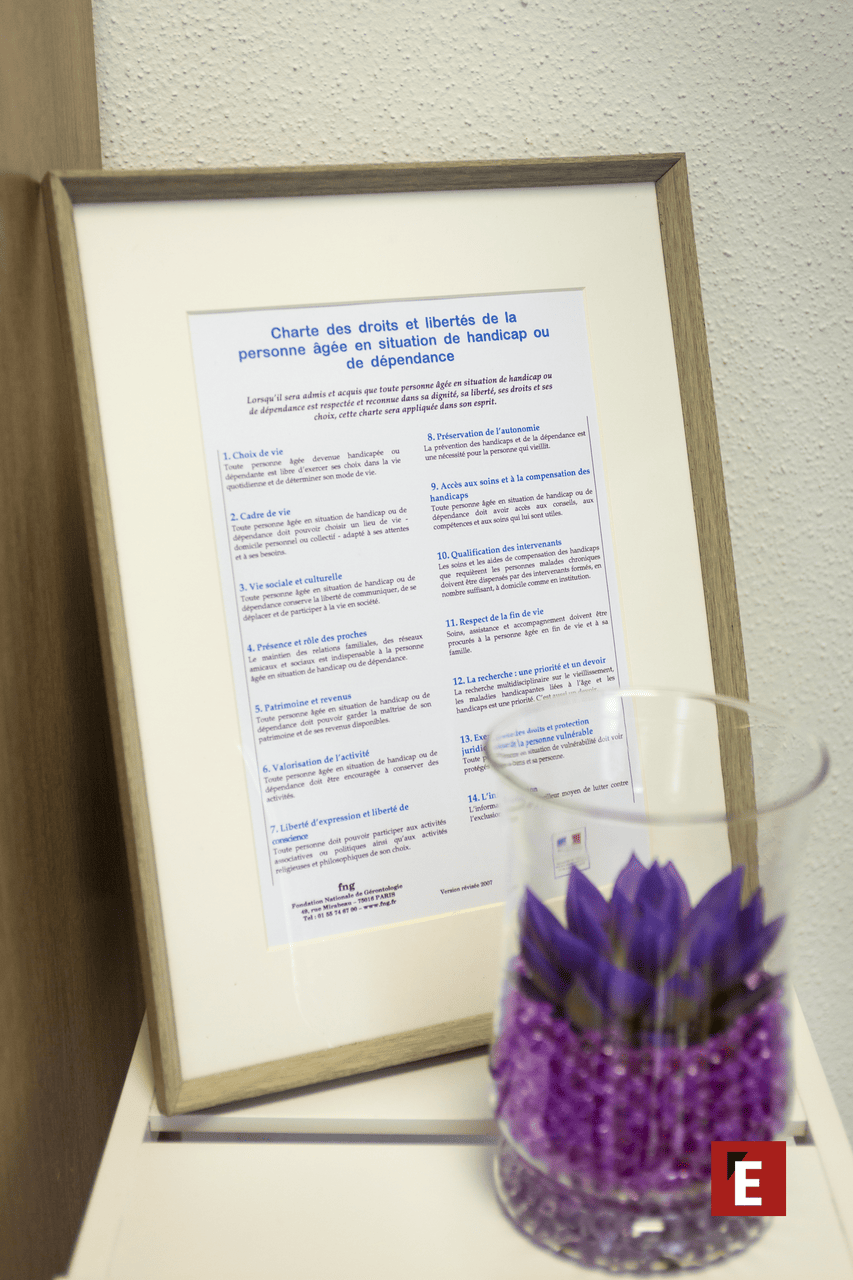 Charte des droits et libertés de la
personne âgée en situation de handicap ou
de dépendance
Lorsqu'il sera admis et acquis que toute personne âgée en situation de handicap ou
de dépendance est respectée et reconnue dans sa dignité, sa liberté, ses droits et ses
choix, cette charte sera appliquée dans son esprit.
1. Choix de vie
Toute personne âgée devenue handicapée ou
dépendante est libre d'exercer ses choix dans la vie
quotidienne et de déterminer son mode de vie.
2. Cadre de vie
Toute personne âgée en situation de handicap ou de
dépendance doit pouvoir choisir un lieu de vie -
domicile personnel ou collectif - adapté à ses attentes
et à ses besoins.
3. Vie sociale et culturelle
Toute personne âgée en situation de handicap ou de
dépendance conserve la liberté de communiquer, de se
déplacer et de participer à la vie en société.
4. Présence et rôle des proches
Le maintien des relations familiales, des réseaux
amicaux et sociaux est indispensable à la personne
âgée en situation de handicap ou de dépendance.
5. Patrimoine et revenus
Toute personne âgée en situation de handicap ou de
dépendance doit pouvoir garder la maîtrise de son
patrimoine et de ses revenus disponibles.
6. Valorisation de l'activité
Toute personne âgée en situation de handicap ou de
dépendance doit être encouragée à conserver des
activités.
7. Liberté d'expression et liberté de
conscience
Toute personne doit pouvoir participer aux activités
associatives ou politiques ainsi qu'aux activités
religieuses et philosophiques de son choix.
fng
Fondation Nationale de Gérontologie
49, rue Mirabeau - 75016 PARIS
Tel : 01 55 74 67 00 - www.fng.fr
8. Préservation de l'autonomie
La prévention des handicaps et de la dépendance est
une nécessité pour la personne qui vieillit.
9. Accès aux soins et à la compensation des
handicaps
Toute personne âgée en situation de handicap ou de
dépendance doit avoir accès aux conseils, aux
compétences et aux soins qui lui sont utiles.
10. Qualification des intervenants
Les soins et les aides de compensation des handicaps
que requièrent les personnes malades chroniques
doivent être dispensés par des intervenants formés, en
nombre suffisant, à domicile comme en institution.
11. Respect de la fin de vie
Soins, assistance et accompagnement doivent être
procurés à la personne âgée en fin de vie et à sa
famille.
12. La recherche : une priorité et un devoir
La recherche multidisciplinaire sur le vieillissement,
les maladies handicapantes liées à l'âge et les
handicaps est une priorité. C'est aussi un devoir.
13. des droits et protection
de la personne vulnérable
Toute en situation de vulnérabilité doit voir
et sa personne.
14.
meilleur moyen de lutter contre
Version révisée 2007
E